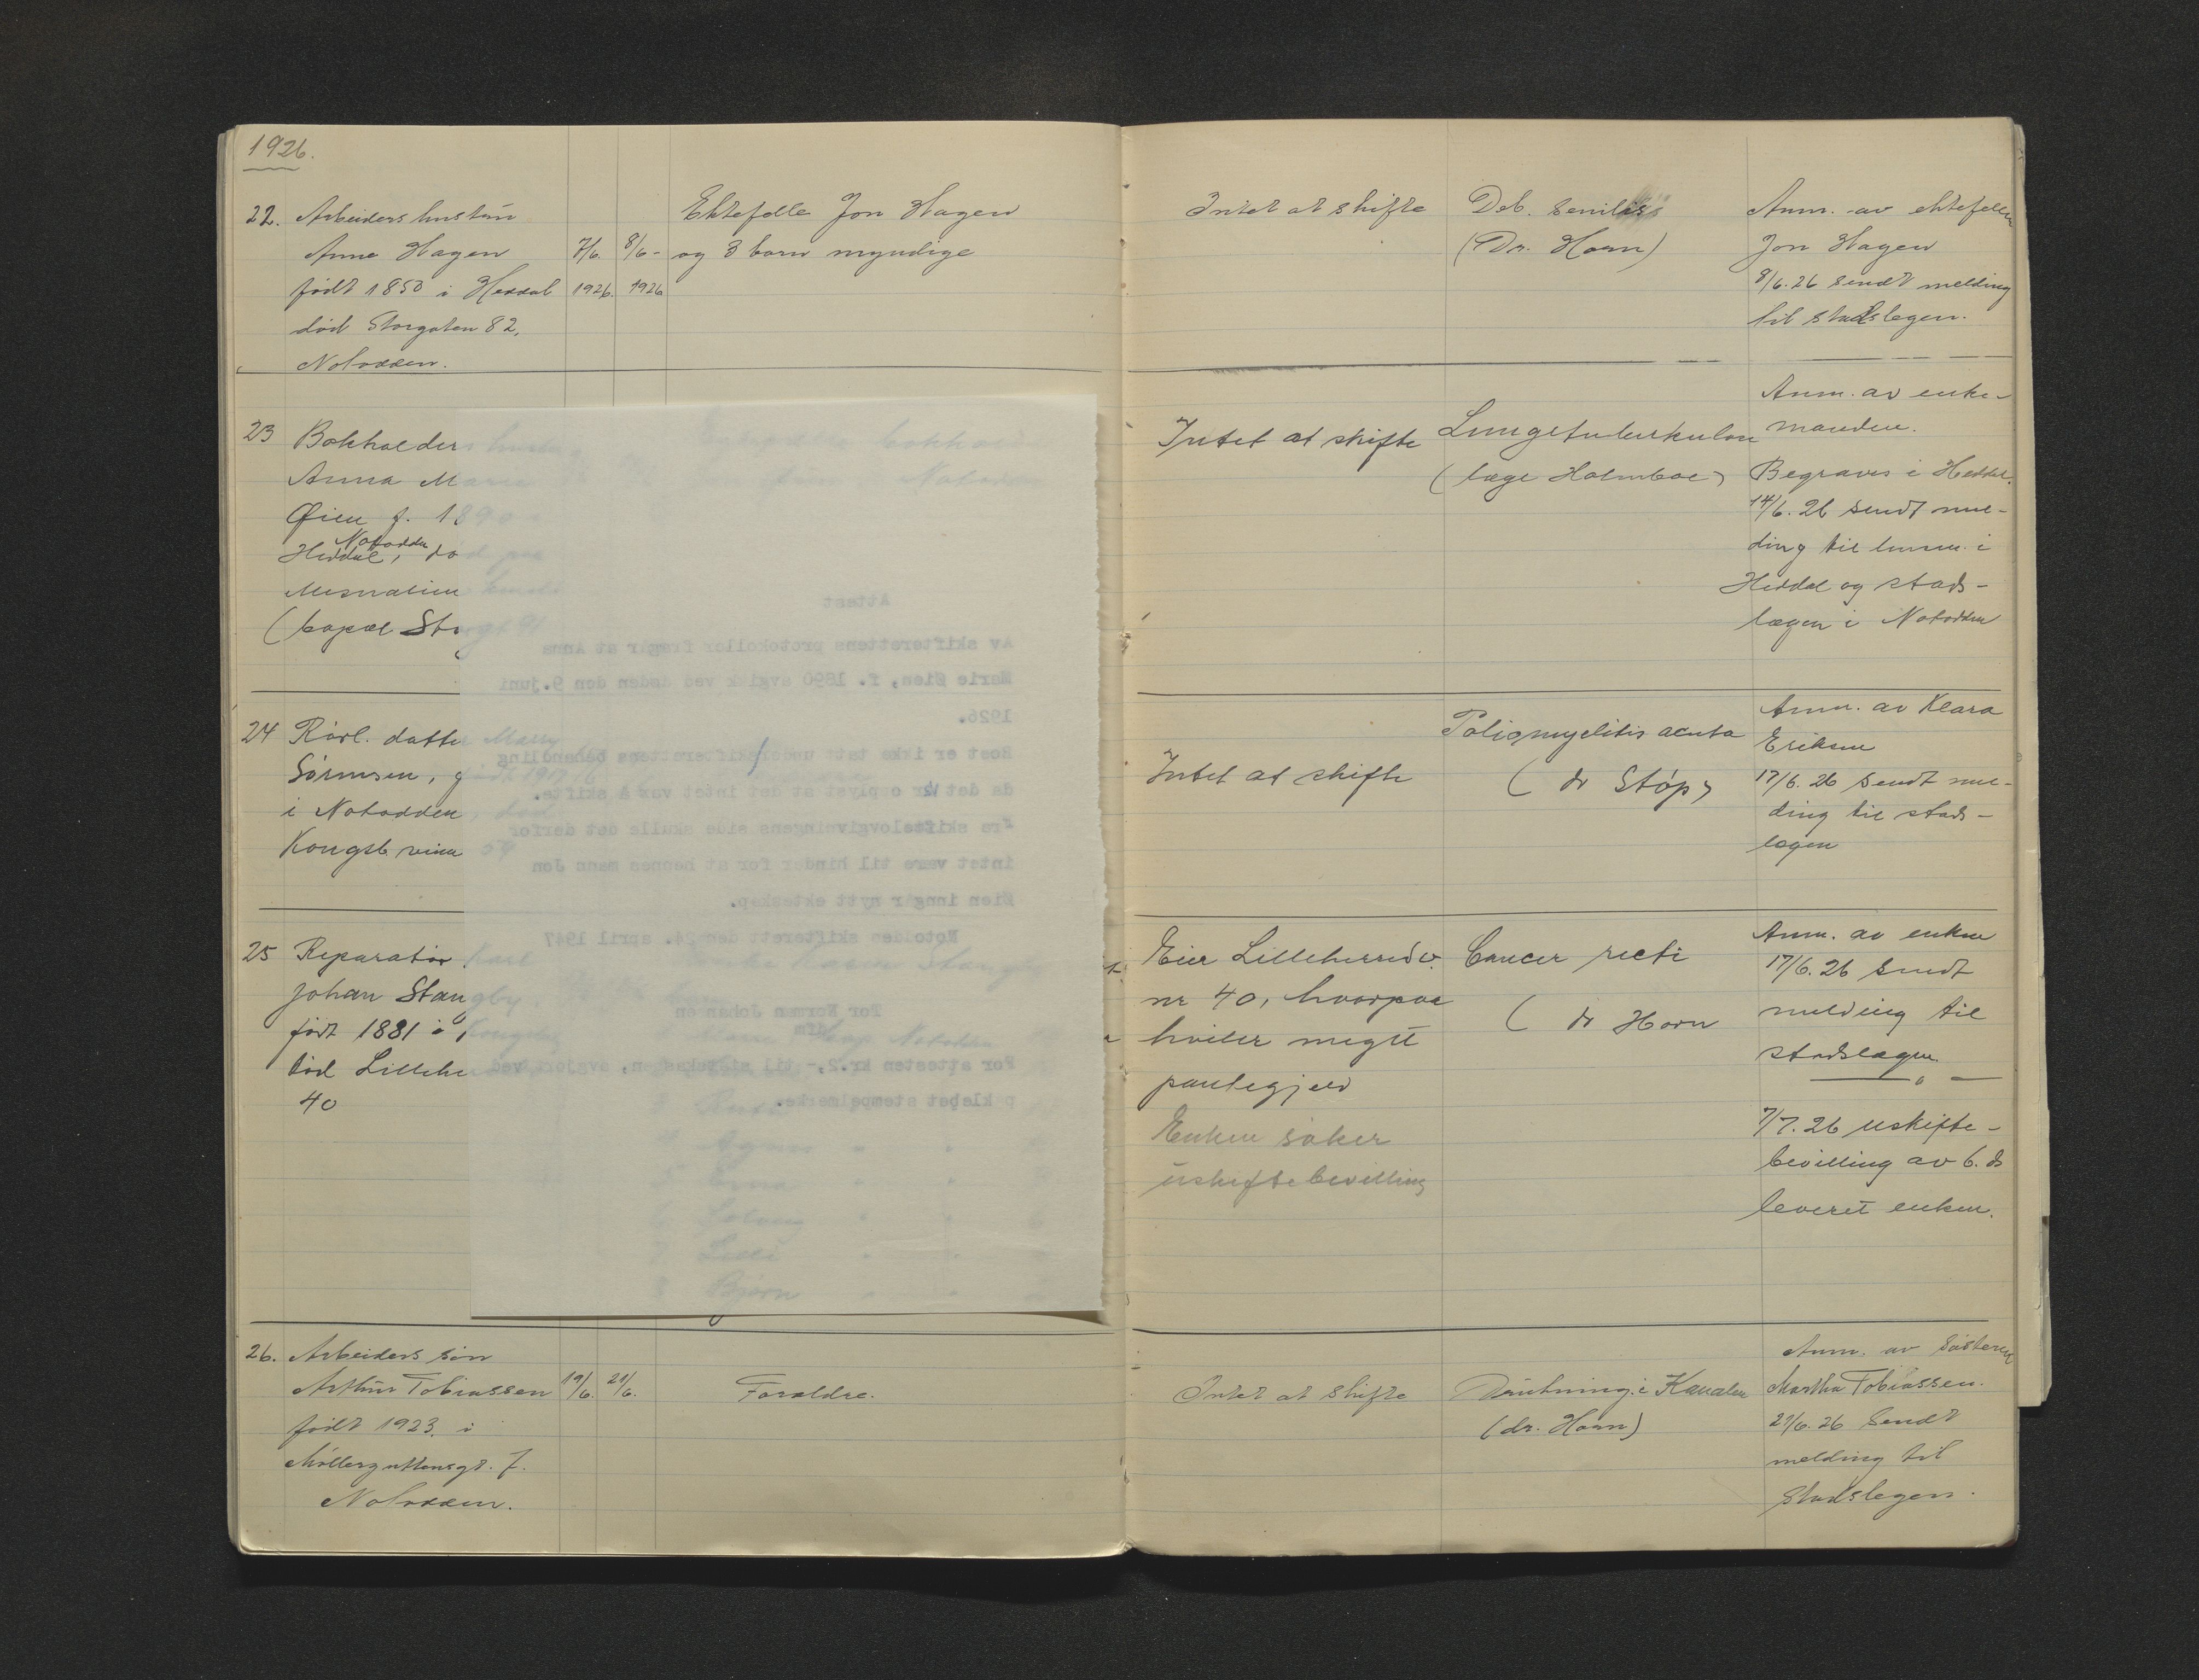 1926.
22. Arbeiders hustru
Anne Hagen 7/6. 8/6-
født 1850 i Heddal 1926. 1926
død Storgaten 82,
Notodden.
Ektefelle Jon Hagen
og 3 barn myndige
Intet at skifte
Deb. senilis
(Dr. Horn)
Anm. av ektefellen
Jon Hagen
8/6.26 sendt melding
til stadslegen.
23 Bokholders hustru
Anna Marie
Øien f. 1890
Notodden
Heddal, død paa
(bopæl Storgt 91
Attest
Av skifterettens protokoller fremgår at Anna
Marie Øien, f. 1890 avgikk ved døden den 9.juni
1926.
Boet er ikke tatt under skifterettens behandling
da det er opplyst at det intet var å skifte.
Fra skiftelovgivningens side skulle det derfor
intet være til hinder for at hennes mann Jon
Øien inngår nytt ekteskap.
Notodden skifterett den 24. april 1947
For Norman Johansen
For attesten kr.2,- til statskassen, avgjort ved
påklebet stempelmerke.
Intet at skifte
Lungetuberkulose
(læge Holmboe)
Anm. av enke-
manden.
Begraves i Heddal.
14/6.26 sendt mel-
ding til lensm. i
Heddal og stads-
lægen i Notodden
24 Rørl. datter Marry
Sørensen, født 1917
i Notodden, død
Intet at skifte
Poliomyelitis acuta
(dr Støp)
Anm. av Klara
Eriksen
17/6.26 sendt mel-
ding til stads-
lægen
25 Reparatør Karl
Johan Stangby.
født 1881 i
død Lilleher
40
Agnes
Erna
Solveig
Lilli
Bjørn
Eier Lilleherredv.
nr 40, hvorpaa
hviler meget
pantegjeld
Enken søker
uskiftebevilling
Cancer recti
(dr Horn
Anm. av enken
17/6.26 sendt
melding til
stadslægen
7/7.26 uskifte-
bevilling av 6. ds
leveret enken.
26. Arbeiders søn
Arthur Tobiassen 19/6. 21/6.
født 1923. i
Møllerguttensgt. 7.
Notodden.
Foreldre.
Intet at skifte
Drukning i Kanalen
(dr. Horn)
Anm. av søsteren
Martha Tobiassen.
21/6.26 sendt
melding til
Stadslegen.